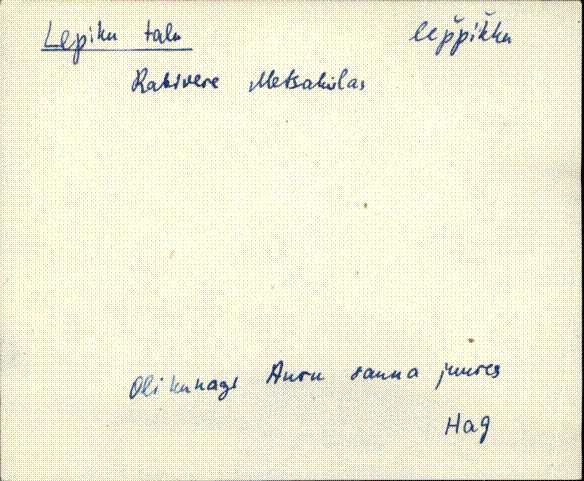 Lepiku talu lep̌piǩku
Rakivere Metsakülas
Oli kunagi Auru sauna juures
Hag